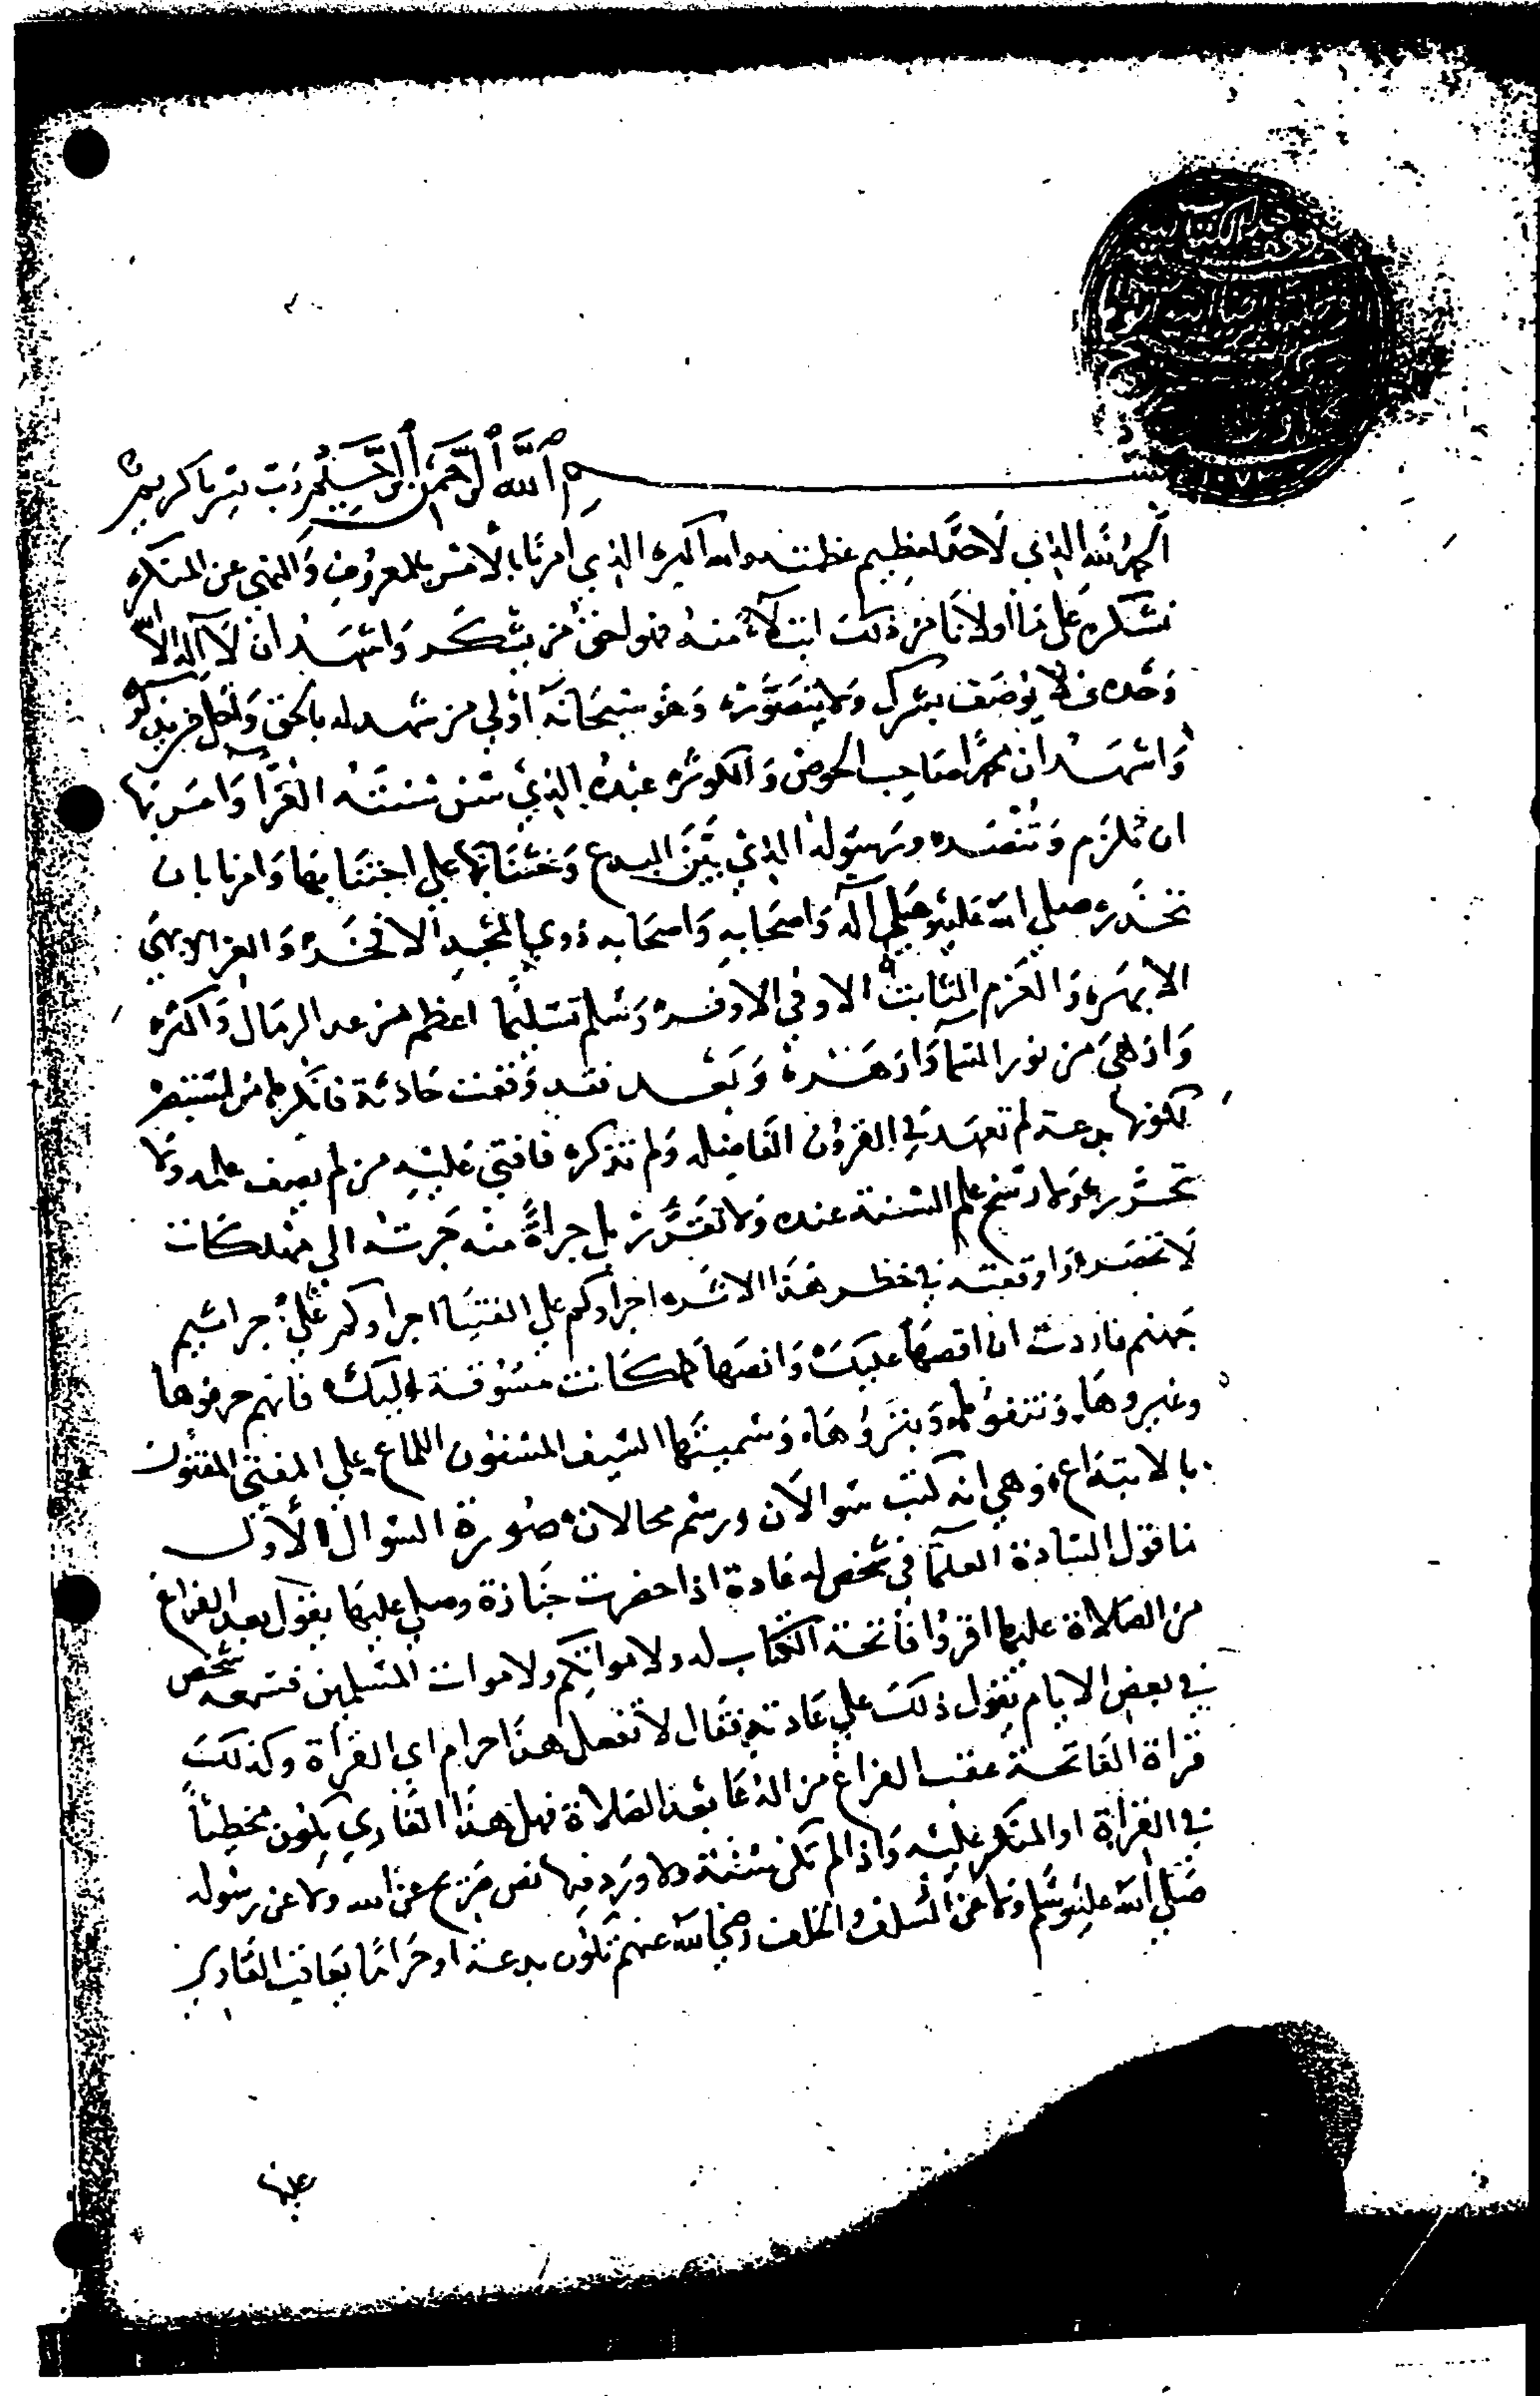 بسم الله الرحمن الرحيم رب يسر يا كريم
الحمد لله الذي لا حد لعظيم عظمته والله اكبره الذي امرنا بالامر بالمعروف والنهي عن المنكره
نشكره على ما اولانا من ذلك ابتلاء منه فهو احق من يشكر واشهد ان لا اله الا
وحده لا يوصف بشرك ولا يتصوره وهو سبحانه اولى من شهد له بالحق
واشهد ان محمدا صاحب الحوض والكوثره عبده الذي سن سنته الغرا وامرنا بها
ان تلزم وتنصره ورسوله الذي بين البدع وحثنا بها علي اجتنابها وامرنا بان
تحذره صلي الله عليه وعلى آله واصحابه واصحابه ذوي المجد الافخره والعز الابهى
الابهره والعزم الثابت الاوفي الاوفره وسلم تسليما اعظم من عد الرمال واكثره
وازهى من نور السما وازهره وبعد فقد وقعت حادثة فانكرها من استبصر
لكونها بدعة لم تعهد في القرون الفاضله ولم تذكره فافتي عليه من لم يعرف علمه ولا
تحرره ولا رسخ علم السنة عنده ولا تقرر بل جراة منه جرته الى مهلكات
لا تحصر واوقعته في خطر هذا الاثره اجراوكم علي الفتيا اجراوكم على جراثيم
جهنم فاردت ان اقصها عليك وانصها كما كانت مسوقة اليك فانهم حرفوها
وغيروها ونتفوها وبتروها وسميتها السيف المسنون اللماع علي المفتي المفتون
بالابتداع وهي انه كتب سوالان ورسم محالان صورة السوال الاول
ما قول السادة العلما في شخص له عادة اذا حضرت جنازة وصلي عليها يقول بعد الفراغ
من الصلاة عليها اقروا فاتحة الكتاب له ولامواتكم ولاموات المسلمين فسمعه شخص
في بعض الايام يقول ذلك علي عادته فقال لا تفعل هذا حرام اي القراة وكذلك
قراة الفاتحة عقب الفراغ من الدعا بعد الصلاة فهل هذا القاري يكون مخطئا
في القراة او المنكر عليه واذا لم تكن سنة ولا ورد فيها نص صريح عن الله ولا عن رسوله
صلي الله عليه وسلم ولا عن السلف والخلف رضي الله عنهم تكون بدعة او حراما يعاقب القاري
عليها